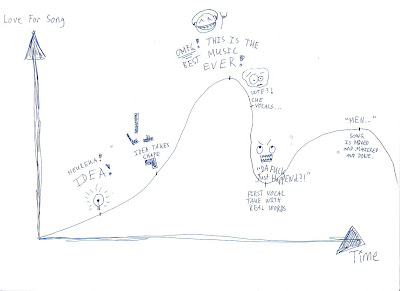 Love For Song
OMFG! THIS IS THE
BEST MUSIC
EVER!
WTF?!
THE
VOCALS...
"MEH..."
SONG
IS MIXED
AND MASTERED
AND DONE.
IDEA TAKES
SHAPE
HEUREKA!
IDEA!
"DA FUCK
Just HAPPEND?!"
FIRST VOCAL
TAKE WITH
REAL WORDS
Time